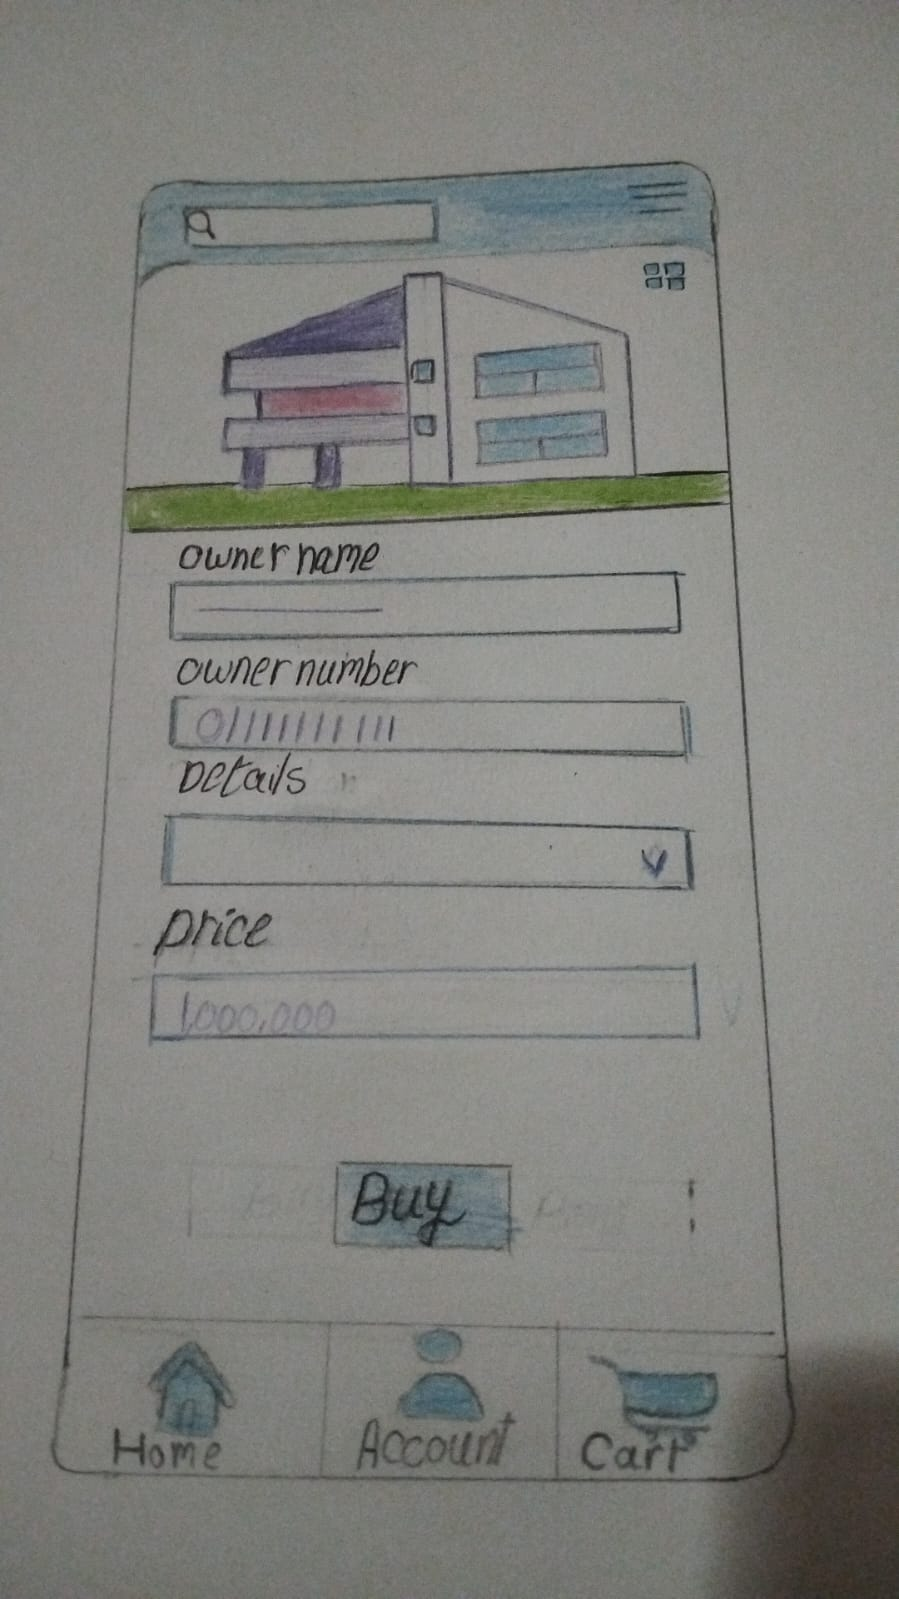 owner name
owner number
01111111111
Details
price
1000,000
Buy
Home
Account
Cart